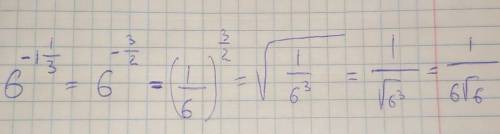 6^{-1\frac{1}{3}} = 6^{-\frac{3}{2}} = \left(\frac{1}{6}\right)^{\frac{3}{2}} = \sqrt{\frac{1}{6^3}} = \frac{1}{\sqrt{6^3}} = \frac{1}{6\sqrt{6}}